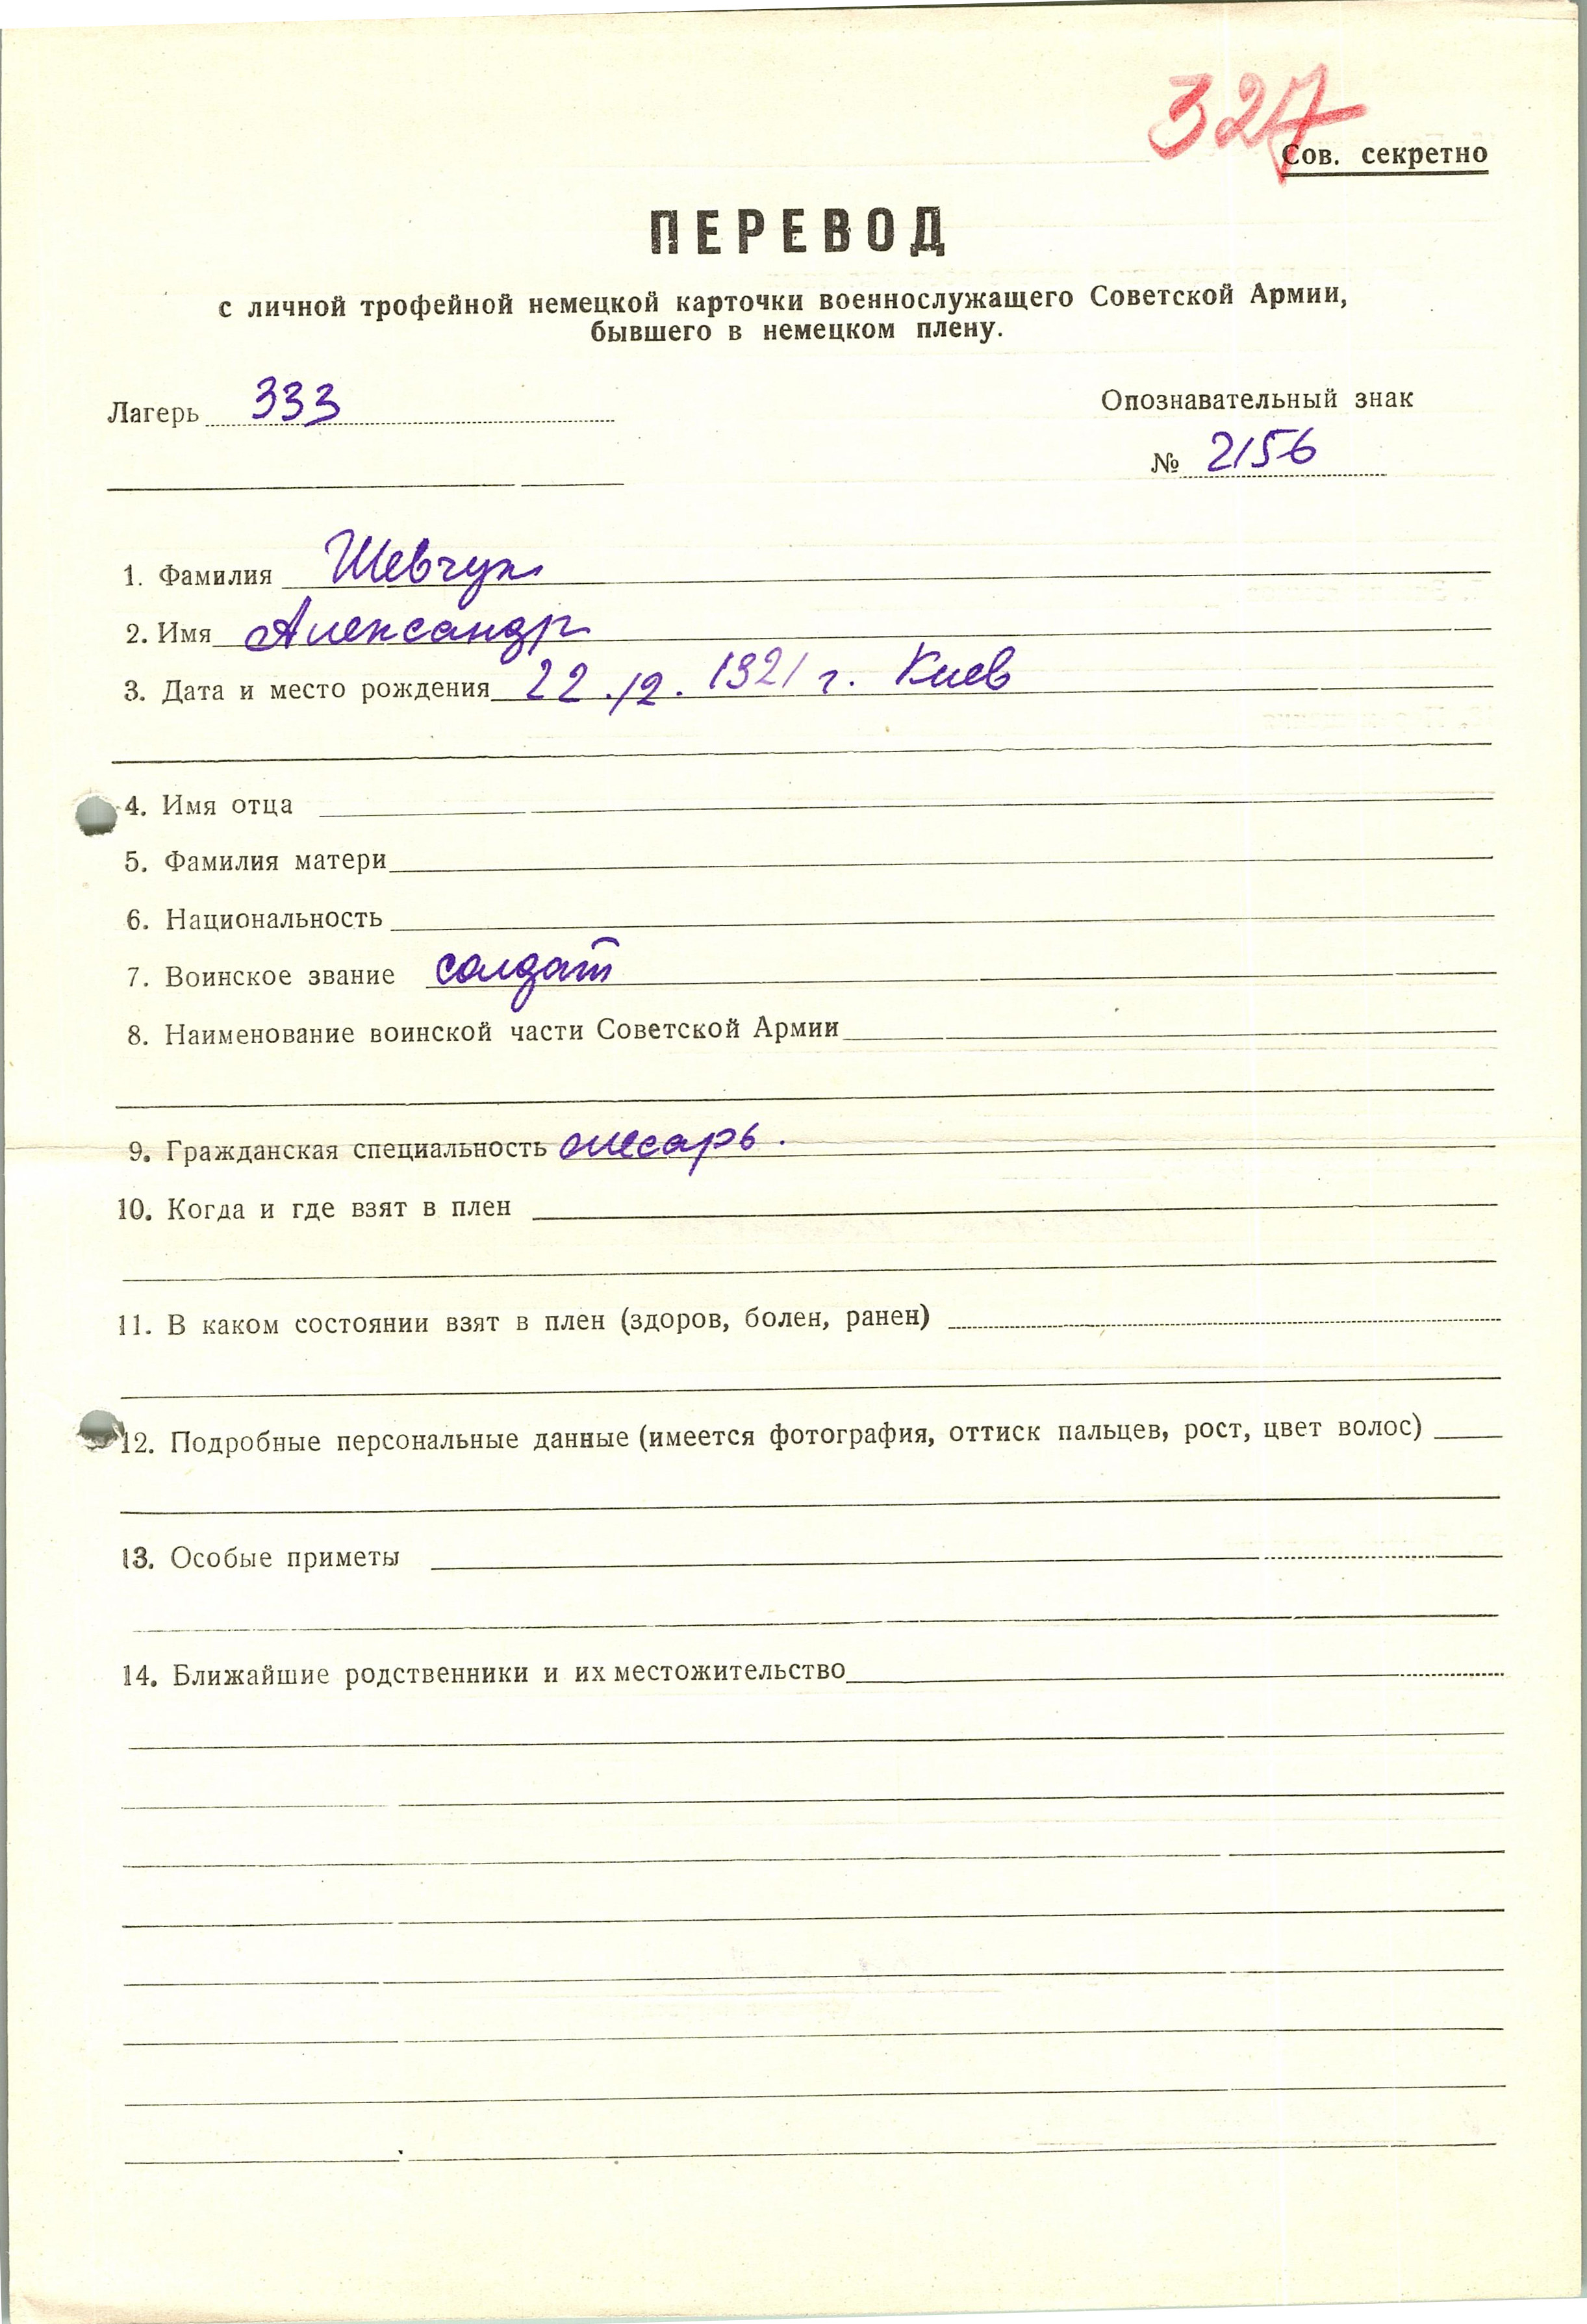 327
Сов. секретно
ПЕРЕВОД
с личной трофейной немецкой карточки военнослужащего Советской Армии,
бывшего в немецком плену.
Лагерь 333
Опознавательный знак
№ 2156
1. Фамилия Шевчук
2. Имя Александр
3. Дата и место рождения 22.12.1921 г. Киев
4. Имя отца
5. Фамилия матери
6. Национальность
7. Воинское звание солдат
8. Наименование воинской части Советской Армии
9. Гражданская специальность слесарь.
10. Когда и где взят в плен
11. В каком состоянии взят в плен (здоров, болен, ранен)
12. Подробные персональные данные (имеется фотография, оттиск пальцев, рост, цвет волос)
13. Особые приметы
14. Ближайшие родственники и их местожительство